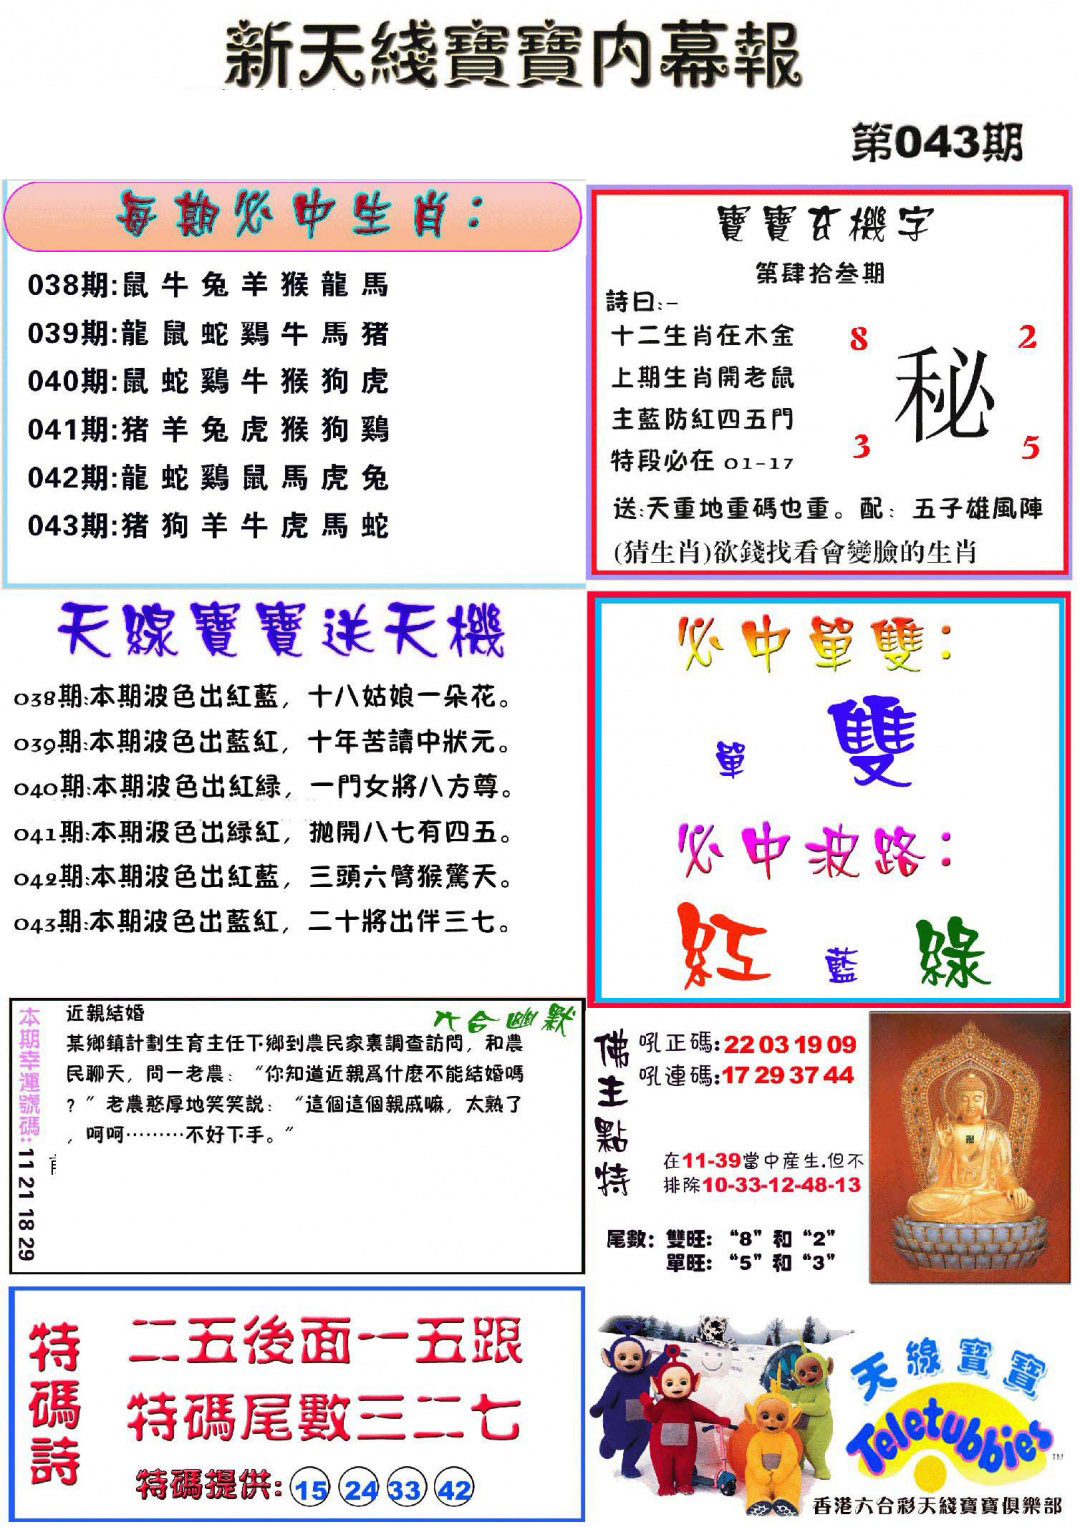 新天綫寶寶内幕報
第043期
每期必中生肖:
038期:鼠牛兔羊猴龍馬
039期:龍鼠蛇鷄牛馬猪
040期:鼠蛇鷄牛猴狗虎
041期:猪羊兔虎猴狗鷄
042期:龍蛇鷄鼠馬虎兔
043期:猪狗羊牛虎馬蛇
寶寶玄機字
第肆拾叁期
詩曰:-
十二生肖在木金
上期生肖開老鼠
主藍防紅四五門
特段必在 01-17
8 2
秘
3 5
送:天重地重碼也重。配：五子雄風陣
(猜生肖)欲錢找看會變臉的生肖
天線寶寶送天機
038期:本期波色出紅藍，十八姑娘一朵花。
039期:本期波色出藍紅，十年苦讀中狀元。
040期:本期波色出紅緑，一門女將八方尊。
041期:本期波色出緑紅，拋開八七有四五。
042期:本期波色出紅藍，三頭六臂猴驚天。
043期:本期波色出藍紅，二十將出伴三七。
必中單雙：
單 雙
必中波路：
紅 藍 綠
本期幸運號碼:11 21 18 29
六合幽默
近親結婚
某鄉鎮計劃生育主任下鄉到農民家裏調查訪問，和農
民聊天，問一老農：“你知道近親爲什麽不能結婚嗎
？”老農憨厚地笑笑説：“這個這個親戚嘛，太熟了
，呵呵………不好下手。”
佛主點特
吼正碼:22 03 19 09
吼連碼:17 29 37 44
在11-39當中産生.但不
排除10-33-12-48-13
尾數：雙旺：“8”和“2”
單旺：“5”和“3”
特碼詩
二五後面一五跟
特碼尾數三二七
特碼提供: 15 24 33 42
天線寶寶
Teletubbies
TM
香港六合彩天綫寶寶俱樂部